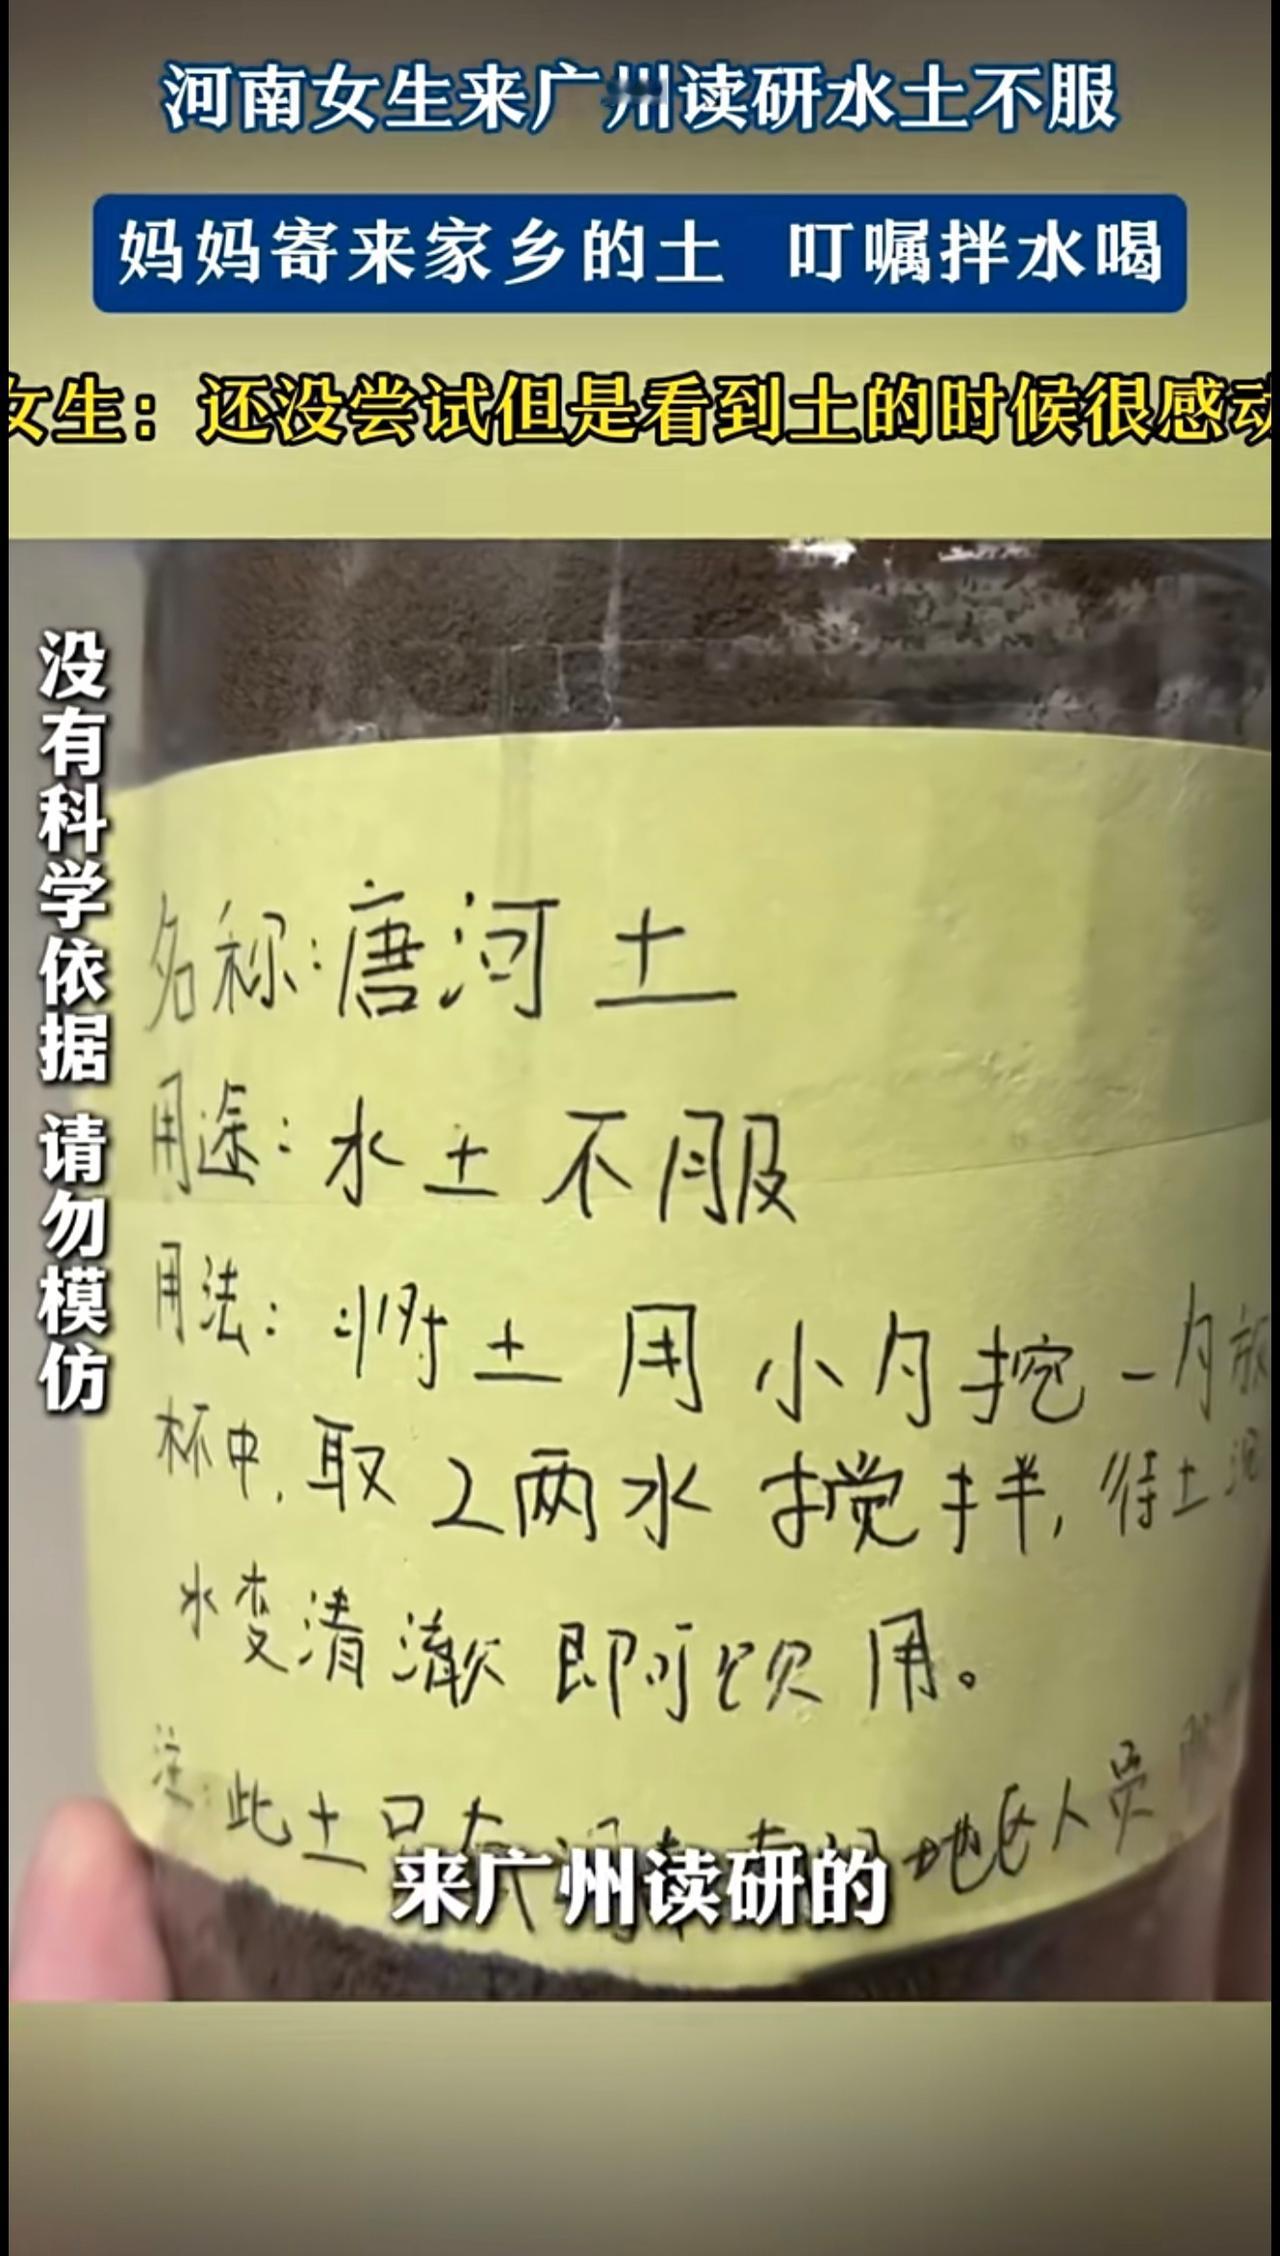 河南女生来广州读研水土不服
妈妈寄来家乡的土 叮嘱拌水喝
女生：还没尝试但是看到土的时候很感动
没有科学依据 请勿模仿
名称：唐河土
用途：水土不服
用法：将土用小勺挖一勺放
杯中，取2两水搅拌，待土沉
水变清澈即可饮用。
注：此土只 地区人员
来广州读研的